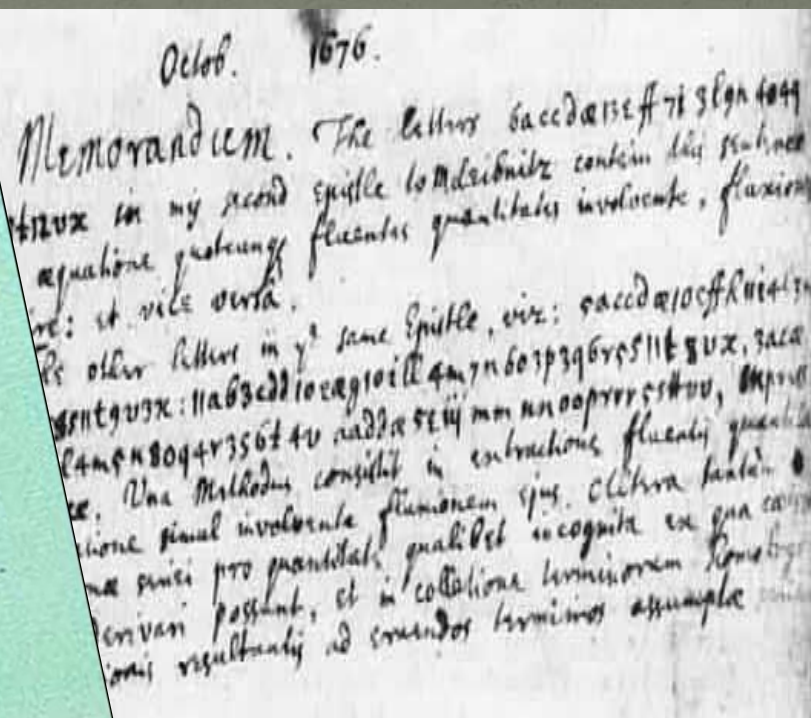 Octob. 1676.
Memorandum. The letters 6accdæ13eff7i3l9n4o4q
4t12vx in my second epistle to M. Leibnitz contein this sentence
æquatione quotcunq fluentes quantitates involvente, fluxiones
re: et vice versâ.
other letters in yᵉ same Epistle, viz: 5accdæ10effh
9v3x: 11ab3cdd10eæg10ill4m7n6o3p3q6r5s11t8vx, 3ac
4m5n8oq4r3s6t4v aaddæ5eiijmmnnooprrr5sttvv,
Una Methodus consistit in extractione fluentis quanti
tione simul involvente fluxionem ejus. Altera tantùm
pro quantitate qualibet incognita ex qua
erivari possunt, et in collatione terminorum homo
onis resultantis ad eruendos terminos assumptæ